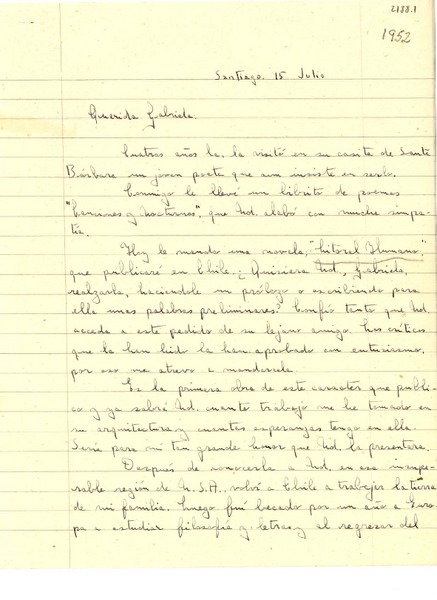 2188.1
1952
Santiago, 15 Julio
Querida Gabriela.
Cuatros años ha, la visitó en su casita de Santa
Bárbara un joven poeta que aun insiste en serlo.
Conmigo le llevé un librito de poemas
"Canciones y Nocturnos", que Ud. alabó con mucha simpa-
tía.
Hoy le mando una novela, "Litoral Humano,"
que publicaré en Chile. ¿Quisiera Ud., Gabriela,
realzarla, haciéndole un prólogo o escribiendo para
ella unas palabras preliminares? Confío tanto que Ud.
acceda a este pedido de su lejano amigo. Los críticos
que la han leido la han aprobado con entusiasmo,
por eso me atrevo a mandársela.
Es la primera obra de este caracter que publi-
co y ya sabrá Ud. cuanto trabajo me he tomado en
su arquitectura y cuantas esperanzas tengo en ella.
Sería para mi tan grande honor que Ud. la presentara.
Después de conocerla a Ud. en esa insupe-
rable región de U.S.A., volví a Chile a trabajar la tierra
de mi familia. Luego fuí becado por un año a Euro-
pa a estudiar filosofía y letras y al regresar del